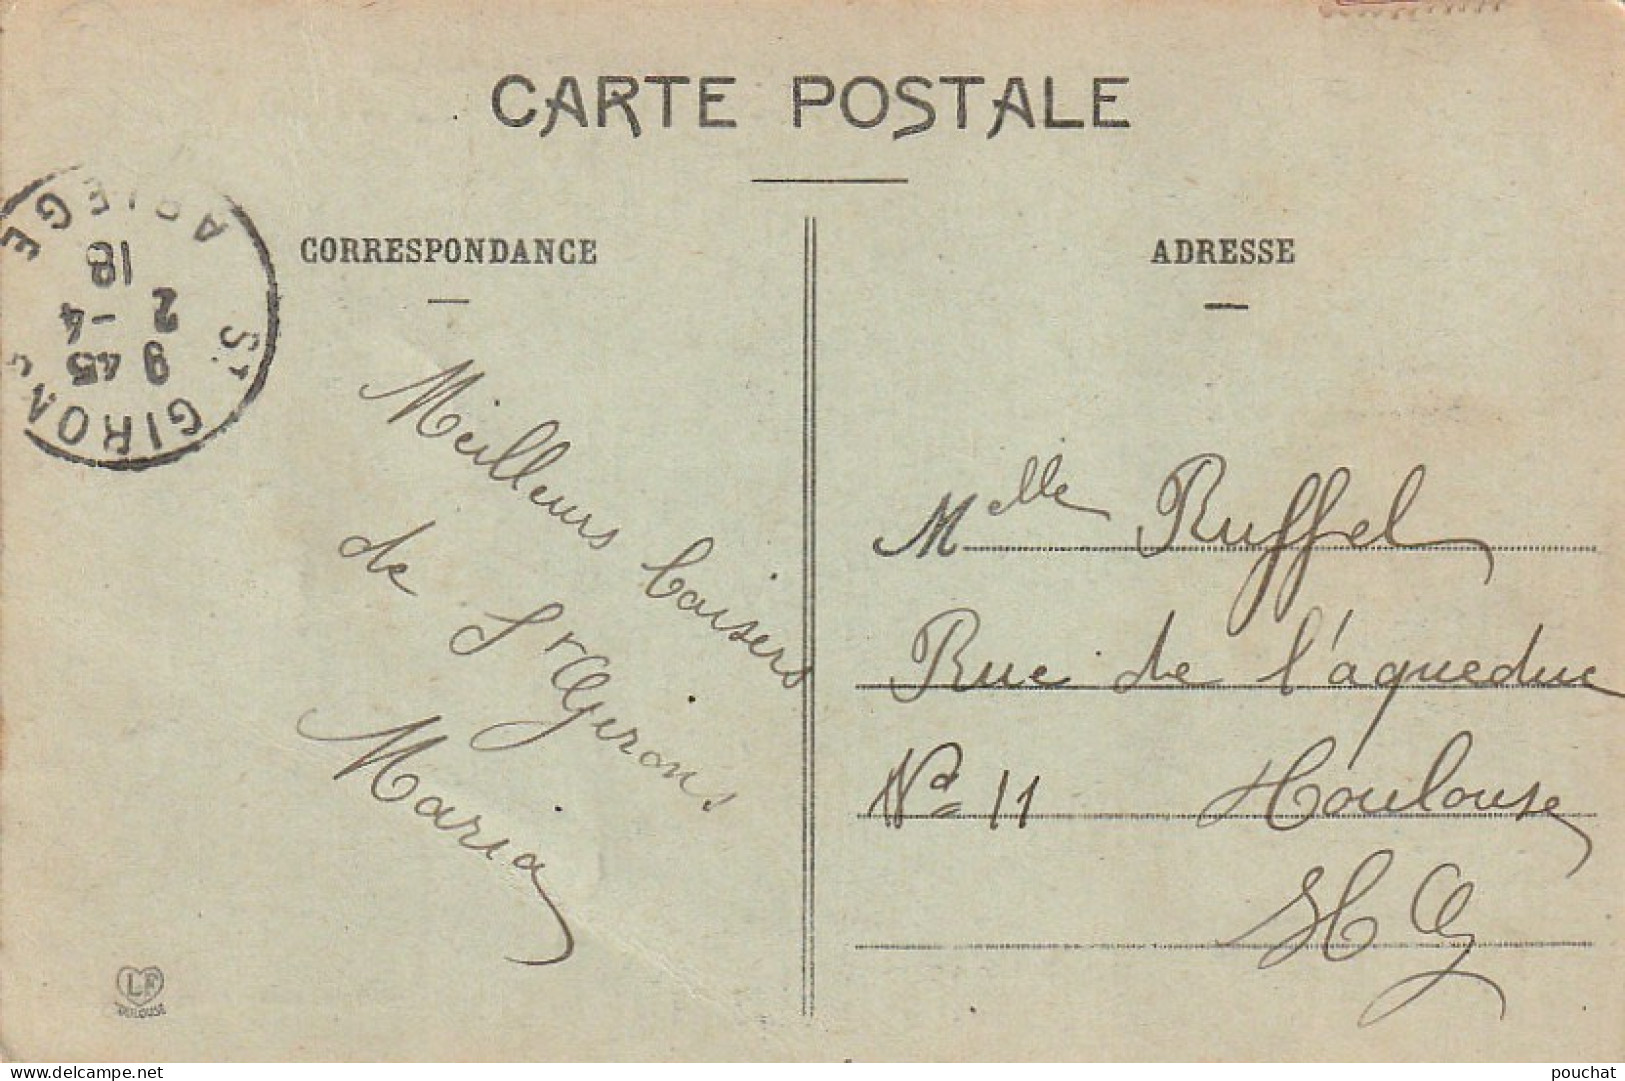 CARTE POSTALE
CORRESPONDANCE
ADRESSE
ST GIRONS
ARIEGE
9 45
2 -4
18
Meilleurs baisers
de St Girons
Maria
Melle Ruffel
Rue de l'aqueduc
No 11 Toulouse
H G
LF
TOULOUSE
delcampe.net
pouchat